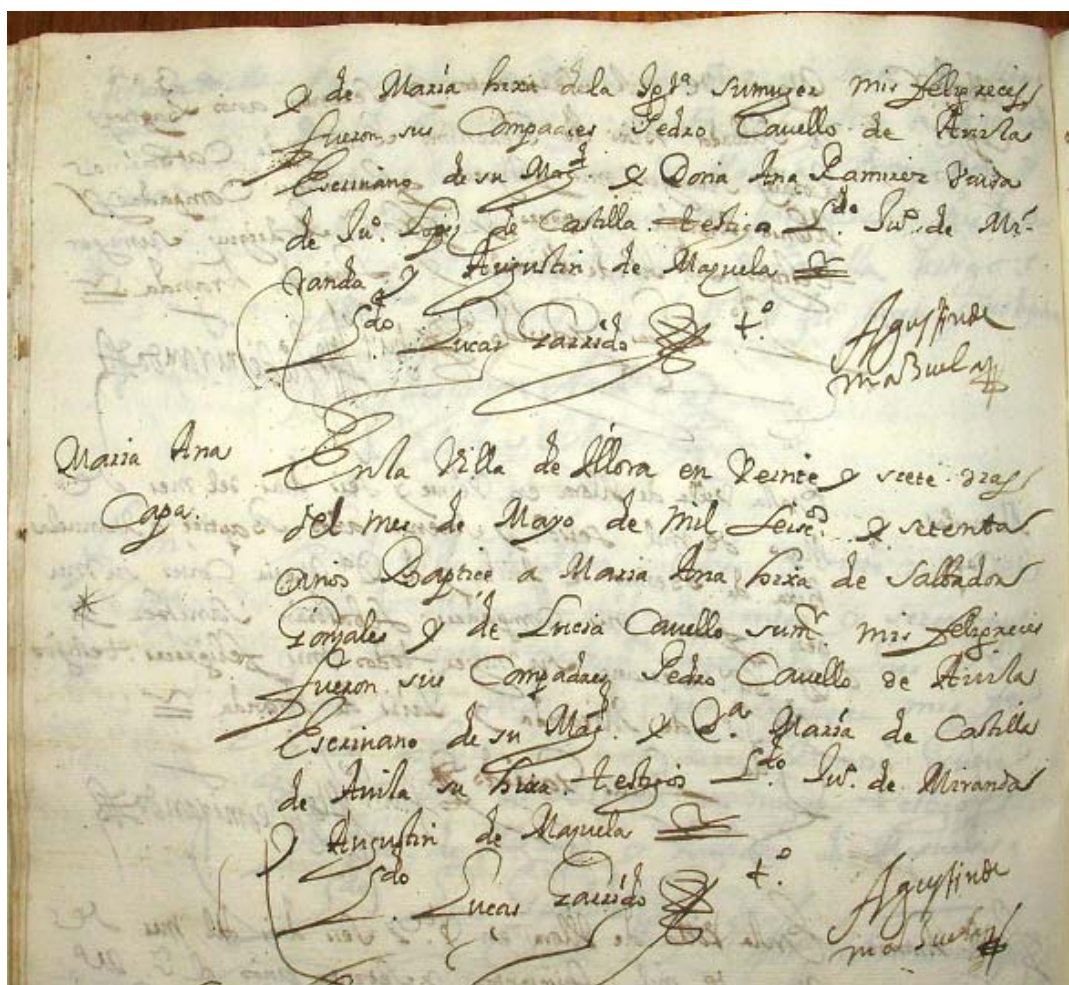 y de María hixa dela Igª. sumuger mis feligreces
fueron sus Compadres Pedro Cavello de Auila
Escriuano de su Magd. y Doña Ana Ramirez Viuda
de Juº. Lopez de Castilla testigos Ldo. Juº. de Mi-
randa y Augustin de Mazuela
Ldo. Lucas Garrido tº. Agustin de
mazuela
Maria Ana
Capa.
En la Villa de Illora en Veinte y siete dias
del mes de Mayo de Mil Seisº. y setenta
años Baptice a Maria Ana hixa de Salbador
Gonzales y de Lucia Cavello sumr. mis feligreces
fueron sus Compadres Pedro Cavello de Auila
Escriuano de su Magd. y Dª. María de Castilla
de Auila su hixa testigos Ldo. Juº. de Miranda
y Augustin de Mazuela
Ldo. Lucas Garrido tº. Agustin de
mazuela